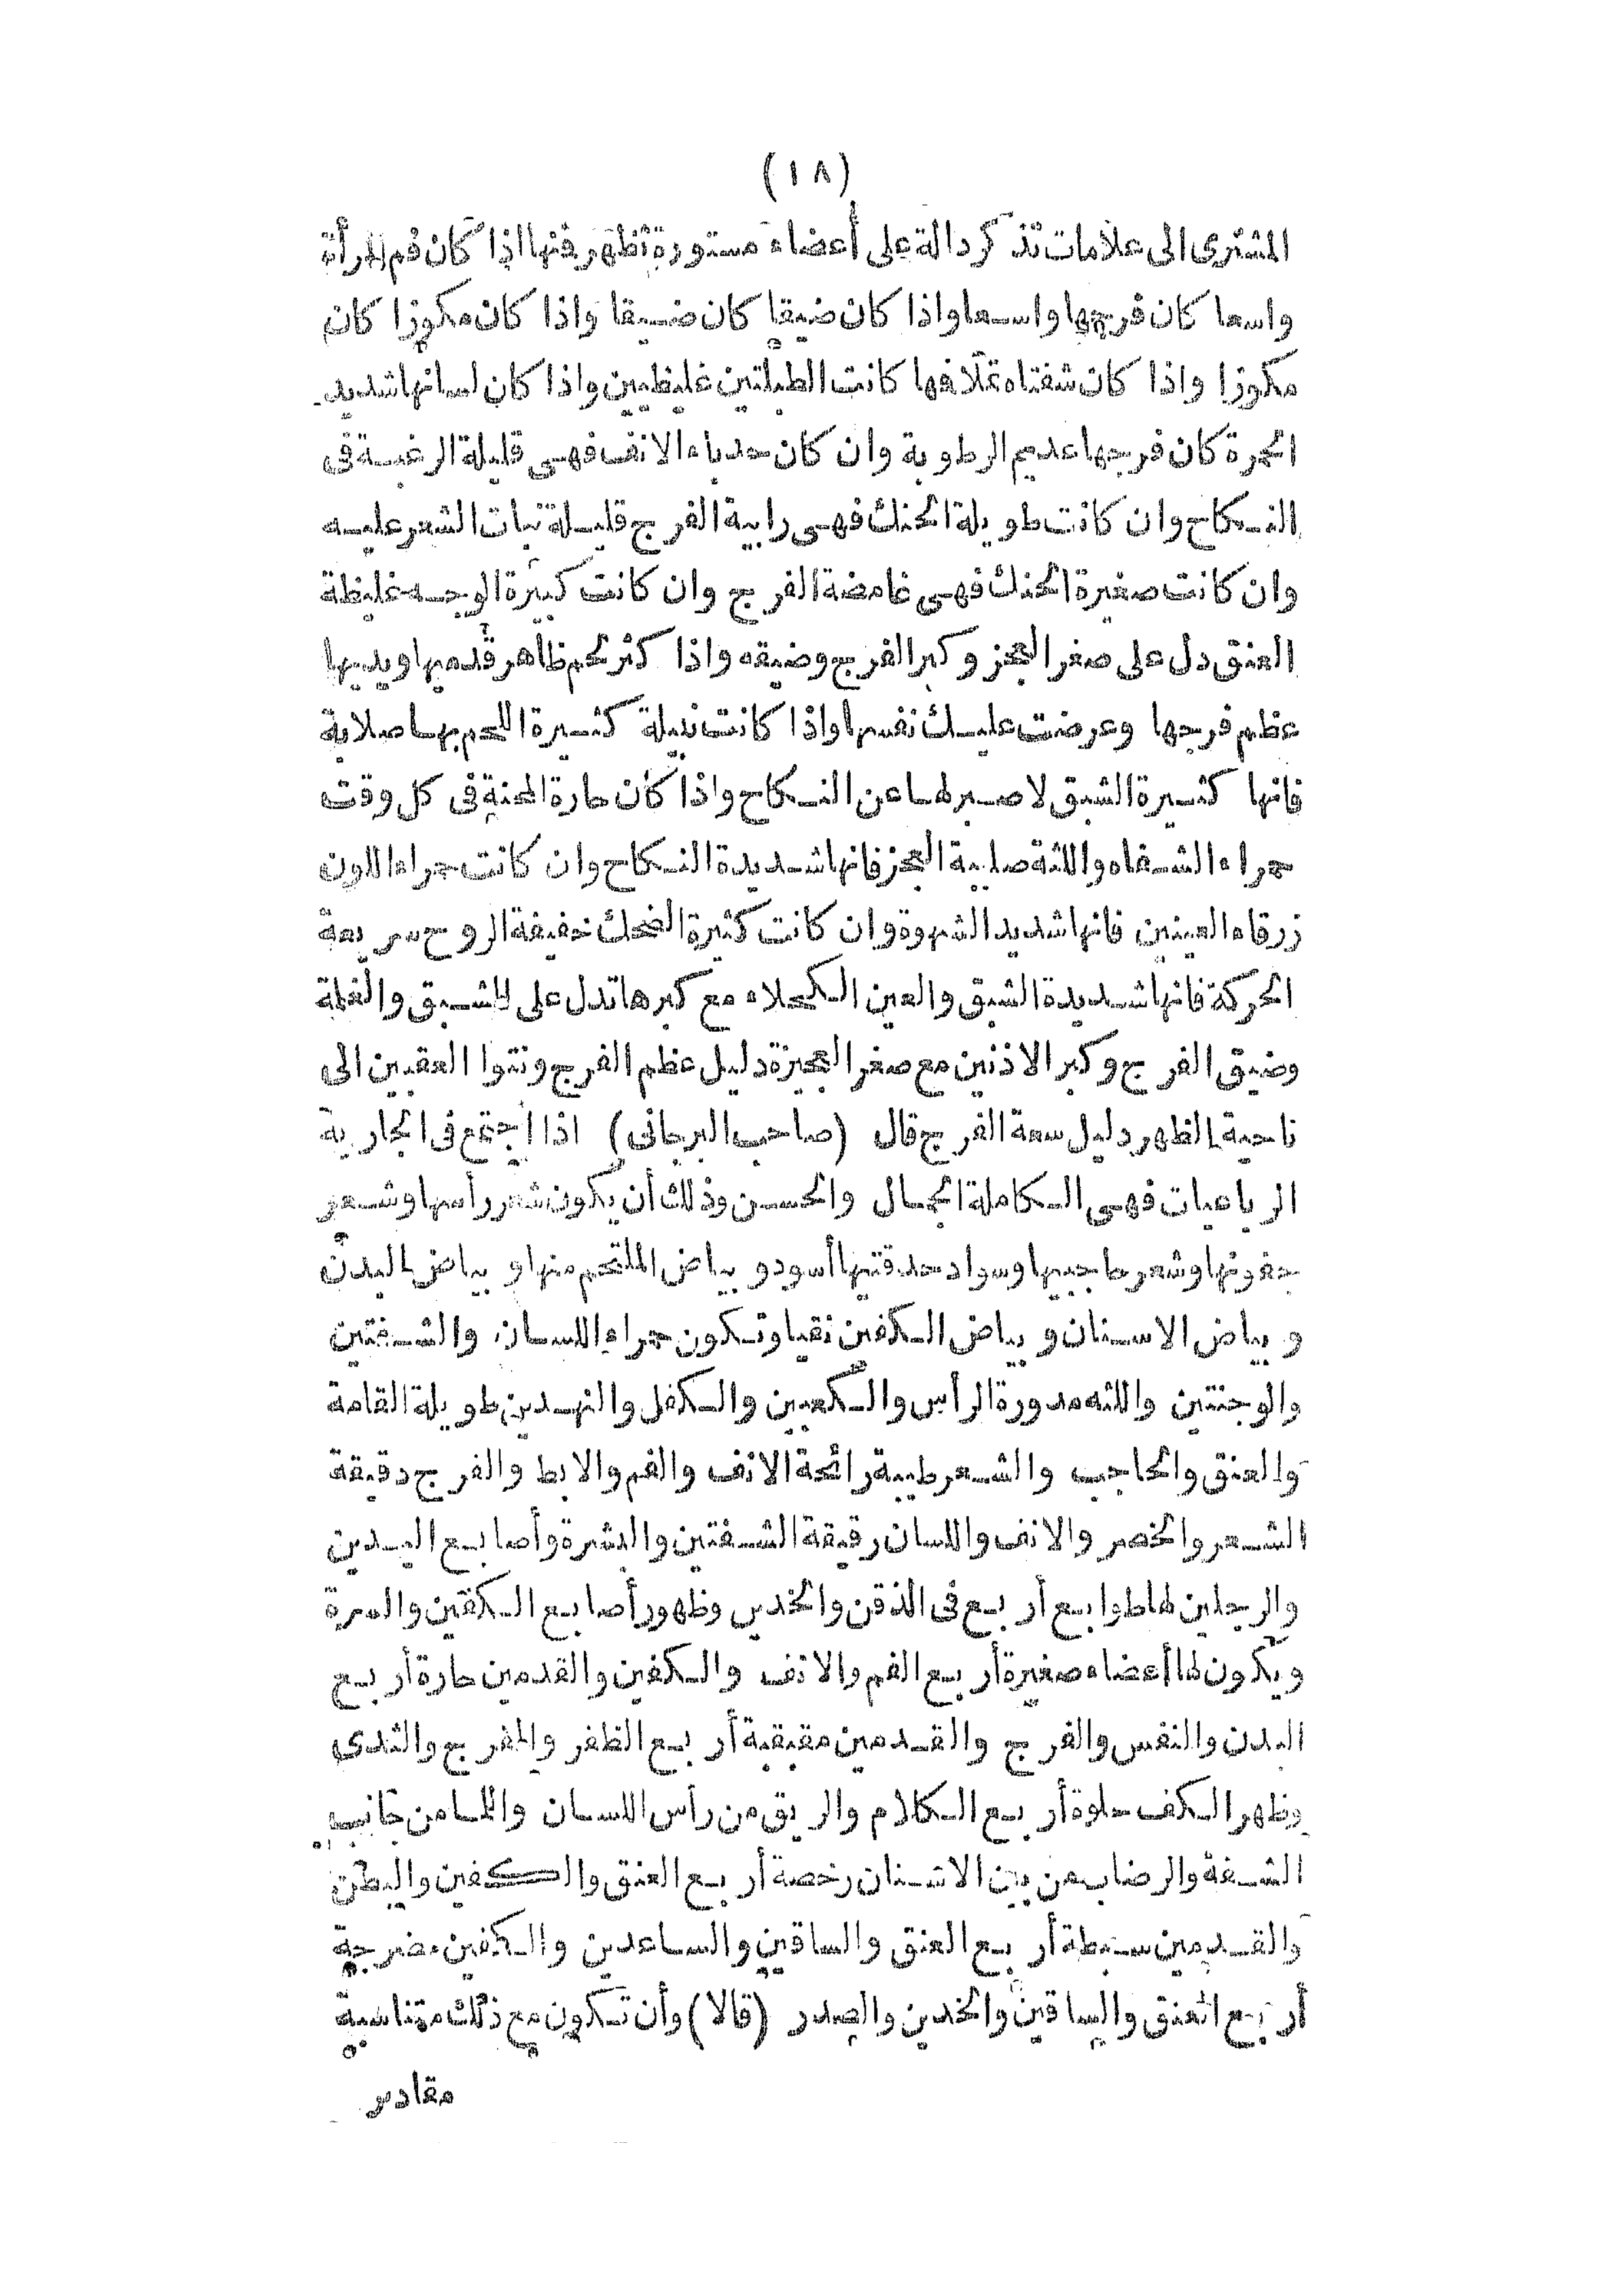 (١٨)
المشترى الى علامات تذكر دالة على أعضاء مستورة تظهر فنها اذا كان فم المرأة
واسعا كان فرجها واسعا واذا كان ضيقا كان ضيقا واذا كان مكوزا كان
مكوزا واذا كان شفتاه غلافها كانت الطبلتين غليظيين واذا كان لسانها شديد
الحمرة كان فرجها عديم الرطوبة وان كان حدباء الانف فهى قليلة الرغبة فى
النكاح وان كانت طويلة الحنك فهى رابية الفرج قليلة نبات الشعر عليه
وان كانت صغيرة الحنك فهى غامضة الفرج وان كانت كبيرة الوجه غليظة
العنق دل على صغر العجز وكبر الفرج وضيقه واذا كثر لحم ظاهر قدميها ويديها
عظم فرجها وعرضت عليك نفسها واذا كانت نبيلة كثيرة اللحم بها صلابة
فانها كثيرة الشبق لا صبر لها عن النكاح واذا كان حارة المحنة فى كل وقت
حمراء الشفاه واللثة صلبة العجز فانها شديدة النكاح وان كانت حمراء اللون
زرقاء العينين فانها شديد الشهوة وان كانت كثيرة الضحك خفيفة الروح سريعة
الحركة فانها شديدة الشبق والعين الكحلاء مع كبرها تدل على الشبق والغلمة
وضيق الفرج وكبر الاذنين مع صغر العجيزة دليل عظم الفرج ونتوا العقبين الى
ناحية الظهر دليل سعة الفرج قال (صاحب البرجانى) اذا اجتمع فى الجارية
الرباعيات فهى الكاملة الجمال والحسن وذلك أن يكون شعر رأسها وشعر
جفونها وشعر حاجبيها وسواد حدقتيها أسود وبياض الملتحم منها وبياض البدن
وبياض الاسنان وبياض الكفين نقيا وتكون حمراء اللسان والشفتين
والوجنتين واللثه مدورة الرأس والكعبين والكفل والنهدين طويلة القامة
والعنق والحاجب والشعر طيبة رائحة الانف والفم والابط والفرج دقيقة
الشعر والخصر والانف واللسان رقيقة الشفتين والبشرة وأصابع اليدين
والرجلين لها طوابع أربع فى الذقن والخدين وظهور أصابع الكفين والسرة
ويكون لها أعضاء صغيرة أربع الفم والانف والكفين والقدمين حارة أربع
البدن والنفس والفرج والقدمين مقبقبة أربع الظفر والفرج والثدى
وظهر الكف حلوة أربع الكلام والريق من رأس اللسان واللما من جانب
الشفة والرضاب من بين الاسنان رخصة أربع العنق والكفين والبطن
والقدمين سبطة أربع العنق والساقين والساعدين والكفين مضرجة
أربع العنق والساقين والخدين والصدر (قالا) وأن تكون مع ذلك متناسبة
مقادير